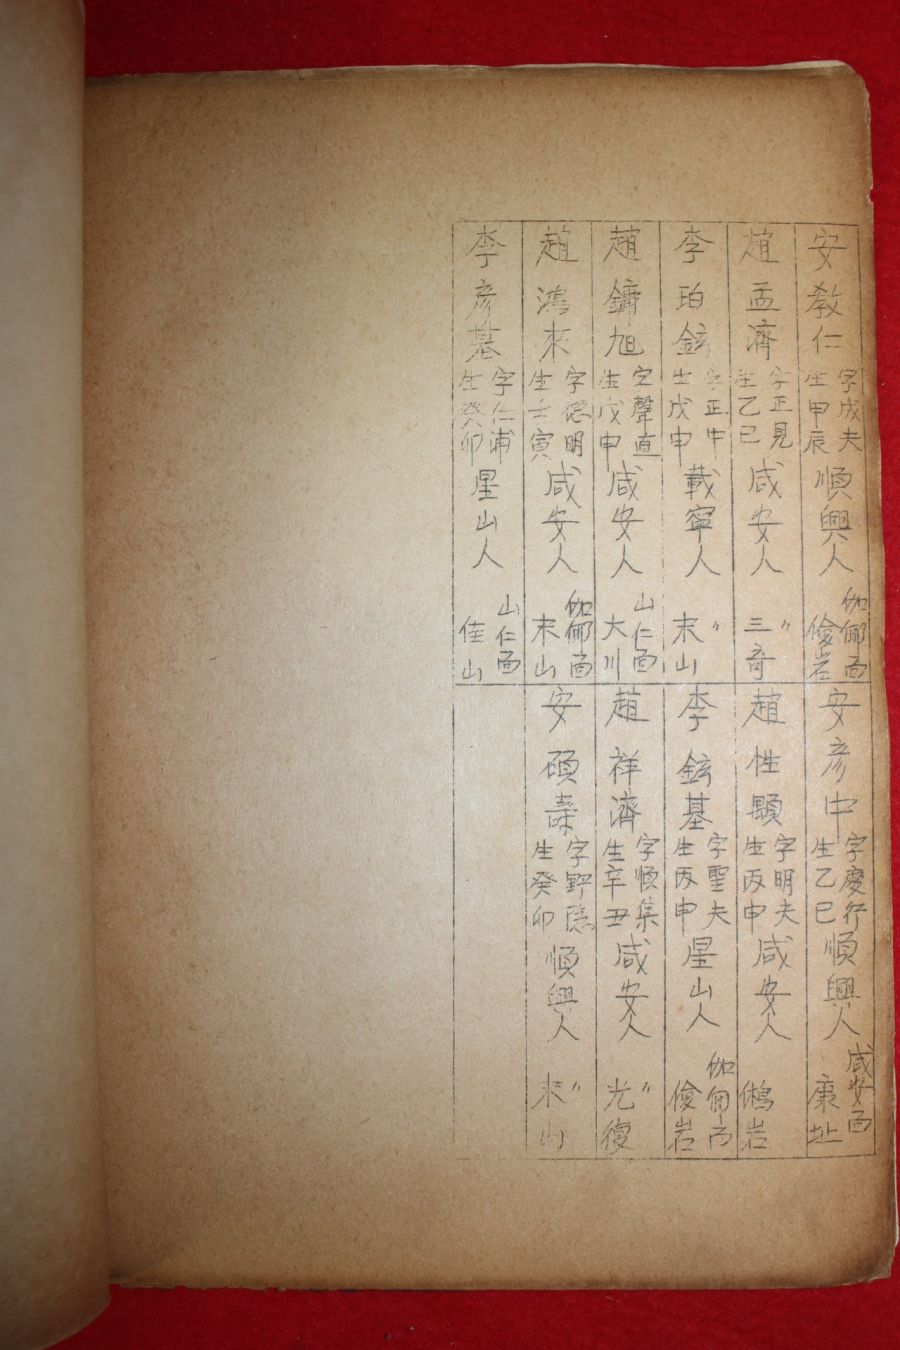 安教仁 字成夫 生甲辰 順興人 伽倻面 儉岩
趙孟濟 字正見 生乙巳 咸安人 〃 三奇
李珀鉉 字正中 生戊申 載寧人 〃 末山
趙鏞旭 字聲直 生戊申 咸安人 山仁面 大川
趙鴻來 字德明 生壬寅 咸安人 伽倻面 末山
李彦基 字仁浦 生癸卯 星山人 山仁面 佳山
安彦中 字慶行 生乙巳 順興人 咸安面 康址
趙性顯 字明夫 生丙申 咸安人 鵂岩
李鉉基 字聖夫 生丙申 星山人 儉岩
趙祥濟 字順集 生辛丑 咸安人 〃 光復
安碩壽 字野隱 生癸卯 順興人 〃 末山